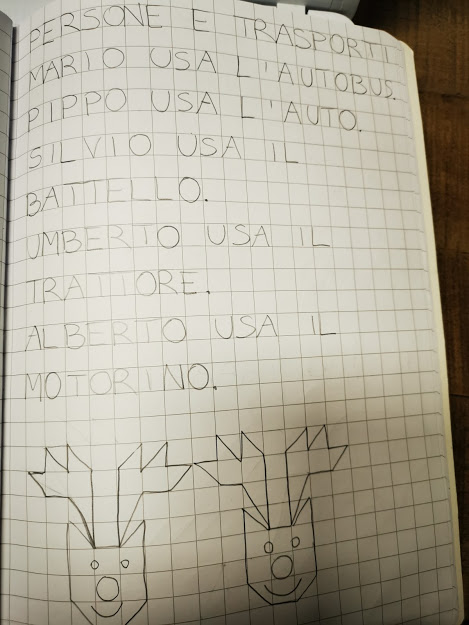 PERSONE E TRASPORTI
MARIO USA L'AUTOBUS.
PIPPO USA L'AUTO.
SILVIO USA IL
BATTELLO.
UMBERTO USA IL
TRATTORE.
ALBERTO USA IL
MOTORINO.